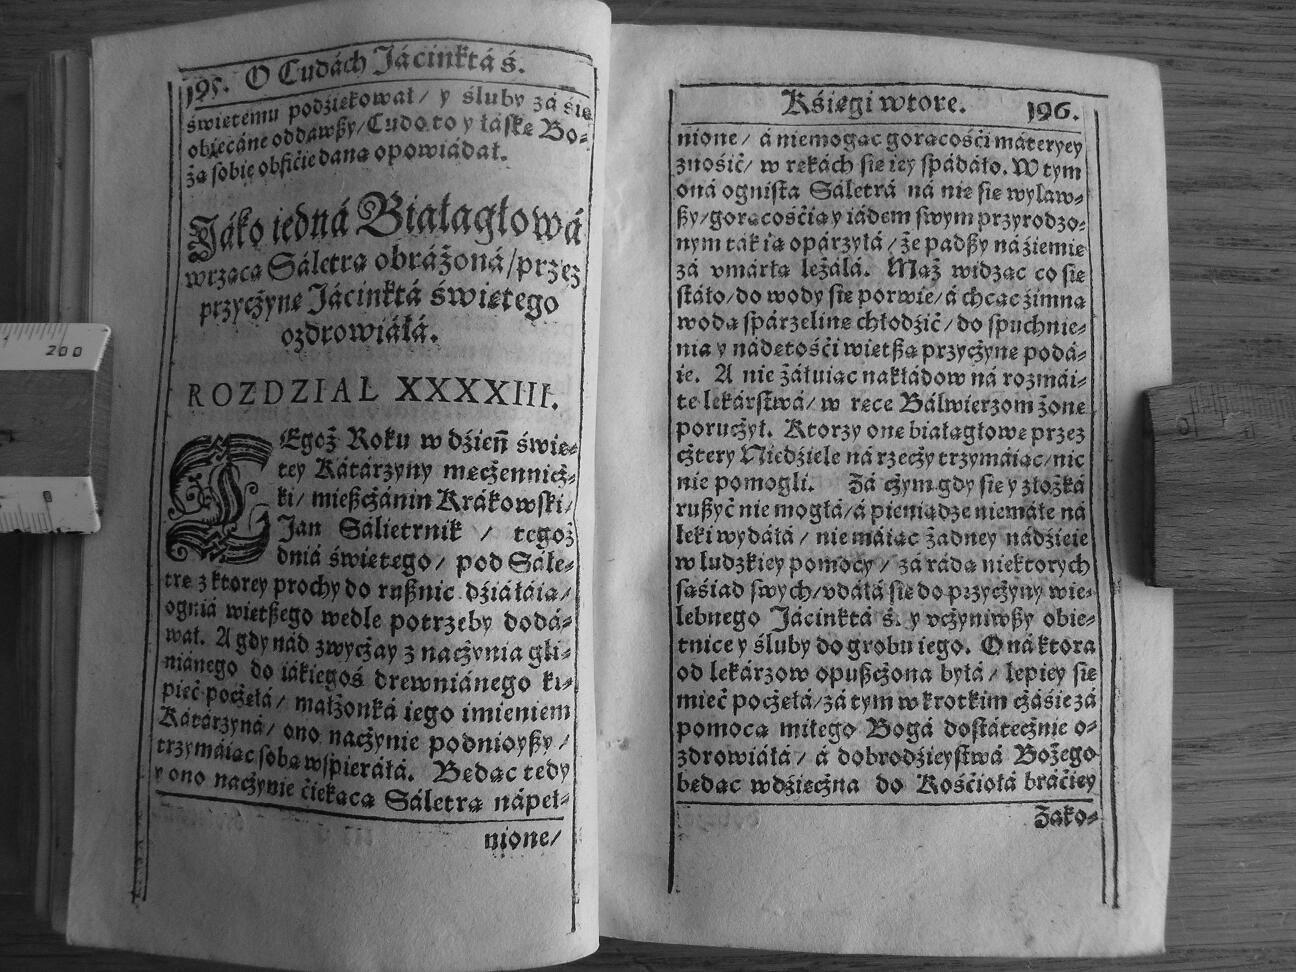 195. O Cudách Jácinktá ś.
świetemu podźiekował / y śluby zá się
obiecáne oddawßy / Cudo to y łáske Bo-
ża sobie obficie dana opowiádał.
Jáko iedná Białagłowá
wrzaca Sáletra obráżoná / przez
przyczyne Jácinktá świetego
ozdrowiáłá.
ROZDZIAŁ XXXXIII.
TEgoż Roku w dźień świe-
tey Kátárzyny meczennicż-
ki / mießczánin Krákowski /
Jan Sálietrnik / tegoż
dniá świetego / pod Sále-
tre z ktorey prochy do rußnic dźiáłáia /
ogniá wietßego wedle potrzeby dodá-
wał. A gdy nád zwyczay z naczynia gli-
niánego do iákiegoś drewniánego ki-
pieć poczełá / małżonká iego imieniem
Kátárzyná / ono naczynie podniozßy /
trzymáiac soba wspieráłá. Bedac tedy
y ono naczynie ciekaca Sáletra nápeł-
nione /
Kśiegi wtore. 196.
nione / á niemogac goracośći máteryey
znośić / w rekách sie iey spádáło. W tym
oná ognista Sáletrá ná nie sie wylaw-
ßy / goracośćia y iádem swym przyrodzo-
nym ták ia opárzyłá / że padßy ná źiemie
zá vmárła leżáłá. Maż widzac co sie
stáło / do wody sie porwie / á chcac źimna
woda spárzeline chłodźić / do spuchnie-
nia y nádetośći wietßa przyczyne podá-
ie. A nie żáłuiac nakłádow ná rozmái-
te lekárstwá / w rece Bálwierzom żone
poruczył. Ktorzy one białagłowe przez
cztery Niedźiele ná rzeczy trzymáiac / nic
nie pomogli. Zá czym gdy sie y z łożká
rußyć nie mogłá / á pieniądze niemáłe ná
leki wydáłá / nie máiac żadney nádźieie
w ludzkiey pomocy / zá ráda niektorych
saśiad swych / vdáłá sie do przyczyny wie-
lebnego Jácinktá ś. y vczyniwßy obie-
tnice y śluby do grobu iego. Oná ktora
od lekárzow opußczona byłá / lepiey sie
mieć poczełá / zá tym w krotkim czáśie zá
pomoca miłego Bogá dostátecznie o-
zdrowiáłá / á dobrodźieystwá Bożego
bedac wdźieczna do Kośćiołá bráciey
Zako-